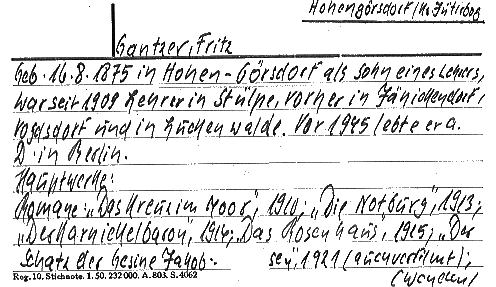 Hohengörsdorf/Kr. Jüterbog
Gantzer, Fritz
Geb. 16.8.1875 in Hohen-Görsdorf als Sohn eines Lehrers,
war seit 1909 Lehrer in Stülpe, vorher in Jänickendorf,
und in Luckenwalde. Vor 1945 lebte er a.
D. in Berlin.
Hauptwerke:
Romane: „Das Kreuz im Moor", 1910; „Die Notburg", 1913;
„Der Karnickelbaron", 1914; „Das Rosenhaus", 1915; „Der
Schatz der Gesine Jakob-
sen, 1921 (auch verfilmt);
Reg. 10. Stichnote. 1. 50. 232 000. A. 803. S. 4062
(wenden!